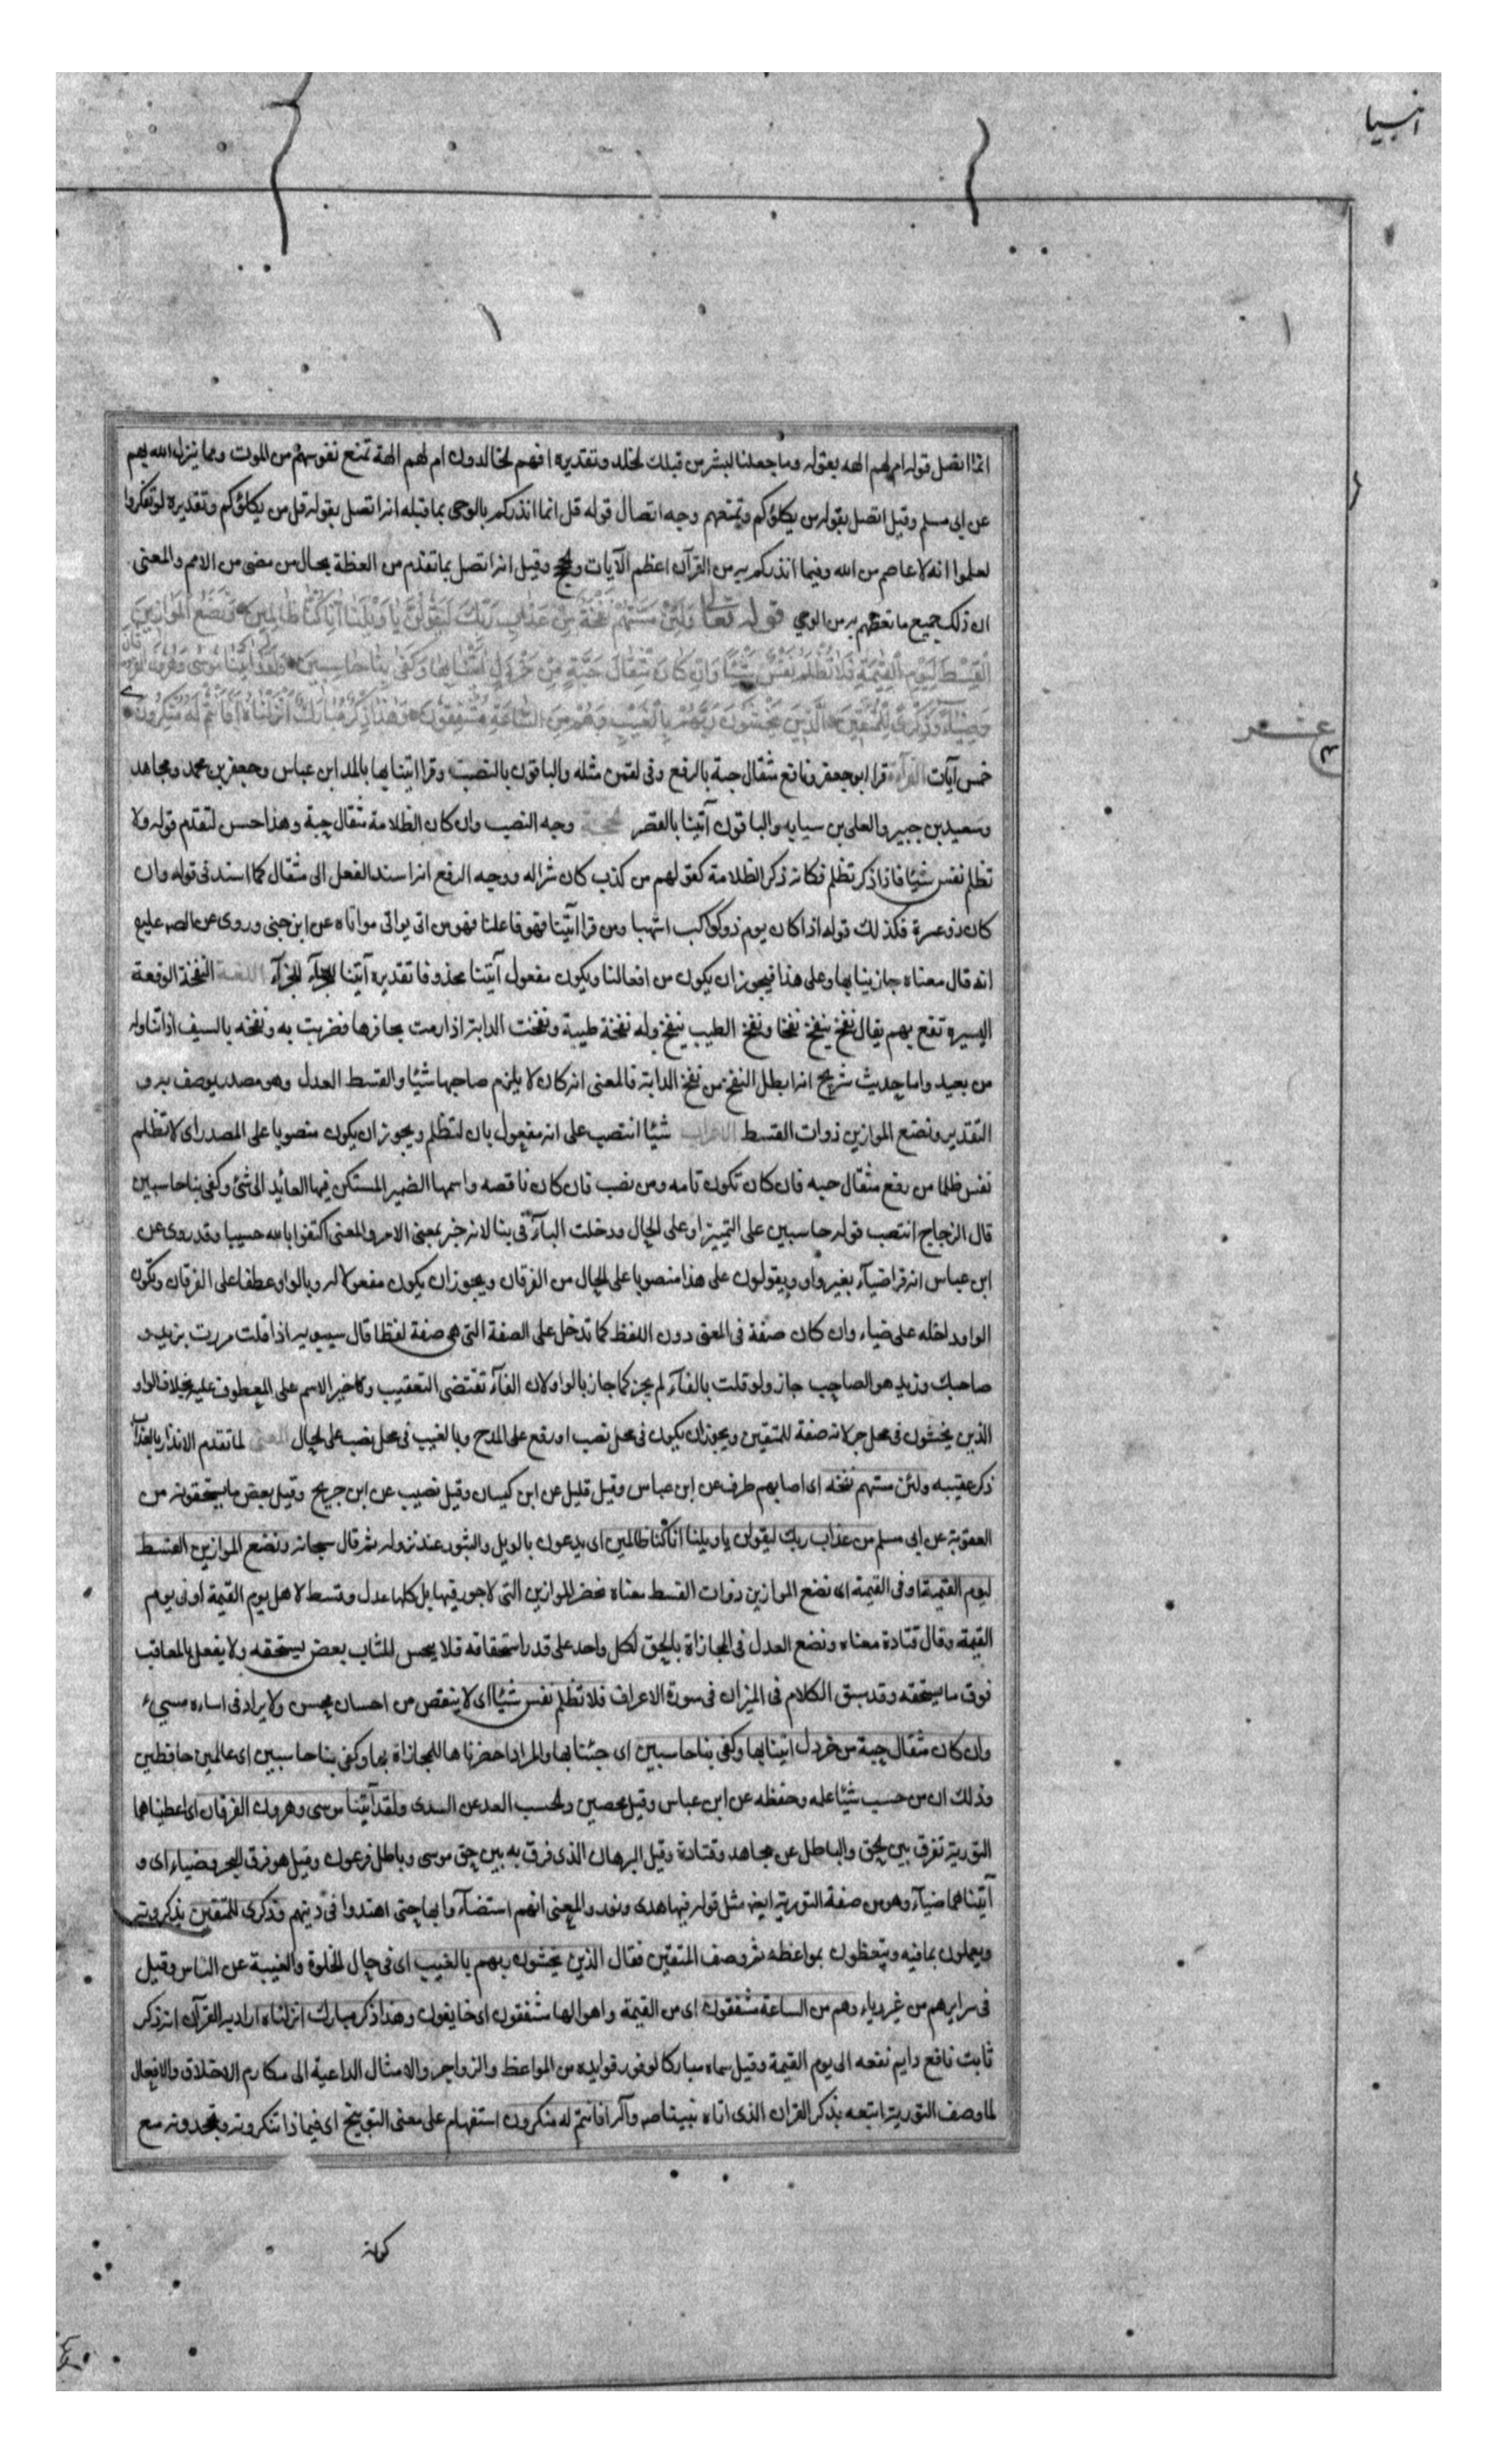 انبيا
انما اتصل قوله ام لهم الهه بقوله وما جعلنا لبشر من قبلك الخلد وتقديره افهم الخالدون ام لهم الهة تمنع نفوسهم من الموت ومما ينزله الله بهم
عن ابى مسلم وقيل اتصل بقوله من يكلؤكم ويمنعهم وجه اتصال قوله قل انما انذركم بالوحى بما قبله انه اتصل بقوله قل من يكلؤكم وتقديره لو تفكروا
لعلموا انه لا عاصم من الله وفيما انذركم به من القرآن اعظم الآيات و وقيل انه اتصل بما تقدم من العظة بحال من مضى من الامم والمعنى
ان ذلك جميع ما نعظهم به من الوحي قوله تعالى وَلَئِنْ مَسَّتْهُمْ نَفْحَةٌ مِنْ عَذَابِ رَبِّكَ لَيَقُولُنَّ يَا وَيْلَنَا اِنَّا كُنَّا ظَالِمِينَ وَنَضَعُ الْمَوَازِينَ
الْقِسْطَ لِيَوْمِ الْقِيٰمَةِ فَلَا تُظْلَمُ نَفْسٌ شَيْئًا وَاِنْ كَانَ مِثْقَالَ حَبَّةٍ مِنْ خَرْدَلٍ اَتَيْنَا بِهَا وَكَفٰى بِنَا حَاسِبِينَ وَلَقَدْ اٰتَيْنَا مُوسٰى وَهٰرُونَ الْفُرْقَانَ
وَضِيَآءً وَذِكْرًى لِلْمُتَّقِينَ اَلَّذِينَ يَخْشَوْنَ رَبَّهُمْ بِالْغَيْبِ وَهُمْ مِنَ السَّاعَةِ مُشْفِقُونَ وَهٰذَا ذِكْرٌ مُبَارَكٌ اَنْزَلْنَاهُ اَفَاَنْتُمْ لَهُ مُنْكِرُونَ
عشر
خمس آيات القرآءة قرا ابو جعفر ونافع مثقال حبة بالرفع وفى لقمن مثله والباقون بالنصب وقرا اتينا بها بالمد ابن عباس وجعفر بن محمد ومجاهد
وسعيد بن جبير والعلى بن سيابه والباقون آتينا بالقصر الحجة وجه النصب وان كان الظلامة مثقال حبة وهذا حسن لتقدم قوله ولا
تظلم نفس شيئا فاذا ذكر تظلم فكانه ذكر الظلامة كقولهم من كذب كان شرا له ووجه الرفع انه اسند الفعل الى مثقال كما اسند فى قوله وان
كان ذو عسرة فكذلك قوله اذا كان يوم ذو كواكب اشهبا ومن قرا آتينا فهو فاعلنا فهو من اتى يواتى مواتاه عن ابن جنى وروى عن الص عليه
انه قال معناه جازينا بها وعلى هذا فيجوز ان يكون من افعالنا ويكون مفعول آتينا محذوفا تقديره آتينا للجزآء اللغة النفخة الوقعة
اليسيره تقع بهم يقال نفخ ينفخ نفخا ونفخ الطيب ينفخ وله نفخة طيبة ونفخت الدابة اذا رمت بحافرها فضربت به ونفخه بالسيف اذا تناوله
من بعيد واما حديث شريح انه ابطل النفخ من نفخ الدابة فالمعنى انه كان لا يلزم صاحبها شيئا والقسط العدل وهو مصدر يوصف به و
التقدير ونضع الموازين ذوات القسط الاعراب شيئا انتصب على انه مفعول بان لتظلم ويجوز ان يكون منصوبا على المصدر اى لا تظلم
نفس ظلما من رفع مثقال حبه فان كان تكون تامه ومن نصب فان كان ناقصه واسمها الضمير المستكن فيها العائد الى شئ وكفى بنا حاسبين
قال الزجاج انتصب قوله حاسبين على التمييز او على الحال ودخلت البآء فى بنا لانه خبر بمعنى الامر والمعنى اكتفوا بالله حسيبا وقد روى عن
ابن عباس انه قرا ضيآء بغير واو ويقولون على هذا منصوبا على الحال من الفرقان ويجوز ان يكون مفعولا له وبالواو عطفا على الفرقان وتكون
الواو داخله على ضياء وان كان صفة فى المعنى دون اللفظ كما تدخل على الصفة التى هى صفة لفظا قال سيبويه اذا قلت مررت بزيد و
صاحبك وزيد هو الصاحب جاز ولو قلت بالفآء لم يجز كما جاز بالواو لان الفآء تقتضى التعقيب وتاخير الاسم على المعطوف عليه بخلاف الواو
الذين يخشون فى محل جر لانه صفة للمتقين ويجوز ان يكون فى محل نصب او رفع على المدح وبالغيب فى محل نصب على الحال المعنى لما تقدم الانذار بالعذاب
ذكر عقيبه ولئن مستهم نفخه اى اصابهم طرف عن ابن عباس وقيل قليل عن ابن كيسان وقيل نصيب عن ابن جريح وقيل بعض ما يستحقونه من
العقوبة عن ابى مسلم من عذاب ربك ليقولن يا ويلنا انا كنا ظالمين اى يدعون بالويل والثبور عند نزوله ثم قال سبحانه ونضع الموازين القسط
ليوم القيمة اى وفى القيمة اى نضع الموازين ذوات القسط معناه نحضر الموازين التى لا جور فيها بل كلها عدل وقسط لاهل يوم القيمة او فى يوم
القيمة وقال قتادة معناه ونضع العدل فى المجازاة بالحق لكل واحد على قدر استحقاقه فلا يحس المثاب بعض يستحقه ولا يفعل بالمعاقب
فوق ما يستحقه وقد سبق الكلام فى الميزان فى سورة الاعراف فلا تظلم نفس شيئا اى لا ينقص من احسان محسن ولا يزاد فى اساءه مسيء
وان كان مثقال حبة من خردل اتينا بها وكفى بنا حاسبين اى جئنا بها والمراد احضرناها للمجازاة بها وكفى بنا حاسبين اى عالمين حافظين
وذلك ان من حسب شيئا علمه وحفظه عن ابن عباس وقيل محصين والحسب العد عن السدى ولقد آتينا موسى وهرون الفرقان اى اعطيناهما
التورية تفرق بين الحق والباطل عن مجاهد وقتادة وقيل البرهان الذى فرق به بين حق موسى وباطل فرعون وقيل هو فرق البحر وضياء اى و
آتيناهما ضيآء وهو من صفة التورية ايضا مثل قوله فيها هدى ونور والمعنى انهم استضآءوا بها حتى اهتدوا فى دينهم وذكرى للمتقين يذكرونه
ويعملون بما فيه ويتعظون بمواعظه ثم وصف المتقين فقال الذين يخشون ربهم بالغيب اى فى حال الخلوة والغيبة عن الناس وقيل
فى سرايرهم من غير رياء وهم من الساعة مشفقون اى من القيمة واهوالها مشفقون اى خايفون وهذا ذكر مبارك انزلناه اراد به القرآن انه ذكر
ثابت نافع دايم نفعه الى يوم القيمة وقيل سماه مباركا لوفور فوايده من المواعظ والزواجر والامثال الداعية الى مكارم الاخلاق والافعال
لما وصف التورية اتبعه بذكر القران الذى اتاه نبينا صه وآله افانتم له منكرون استفهام على معنى التوبيخ اى فيما ذا تنكرونه وتجحدونه مع
كونه